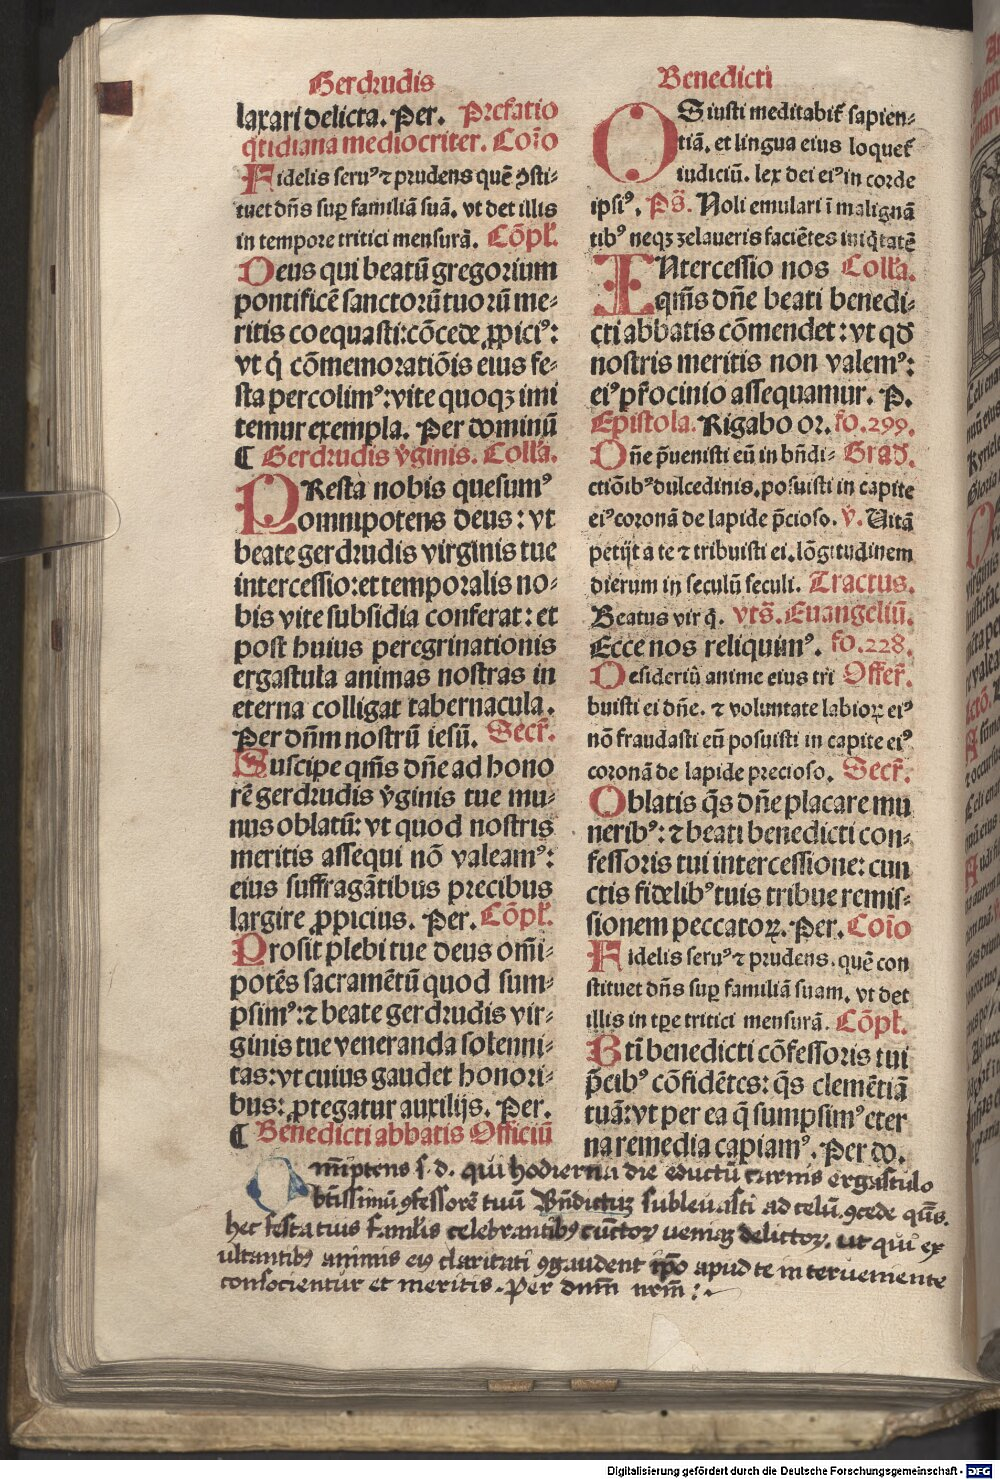 Gerdrudis
laxari delicta. Per. Prefatio
q̄tidiana mediocriter. Cōio
Fidelis seruꝰ ⁊ prudens quē ꝯsti-
tuet dn̄s sup̱ familiā suā. vt det illis
in tempore tritici mensurā. Cōpl̄.
Deus qui beatū gregorium
pontificē sanctorū tuorū me-
ritis coequasti: cōcede ꝓpiciꝰ:
vt q̇ cōmemoratiōis eius fe-
sta percolimꝰ: vite quoqꝫ imi
temur exempla. Per dominū
¶ Gerdrudis v̄ginis. Coll̄a.
PResta nobis quesumꝰ
omnipotens deus: vt
beate gerdrudis virginis tue
intercessio: et temporalis no-
bis vite subsidia conferat: et
post huius peregrinationis
ergastula animas nostras in
eterna colligat tabernacula.
Per dn̄m nostrū iesū. Secr̄.
Suscipe qm̄s dn̄e ad hono
rē gerdrudis v̄ginis tue mu-
nus oblatū: vt quod nostris
meritis assequi nō valeamꝰ:
eius suffragātibus precibus
largire ꝓpicius. Per. Cōpl̄.
Prosit plebi tue deus om̄i-
potēs sacramētū quod sum-
psimꝰ: ⁊ beate gerdrudis vir-
ginis tue veneranda solenni-
tas: vt cuius gaudet honori-
bus: ꝓtegatur auxilijs. Per.
¶ Benedicti abbatis Officiū
Benedicti
OS iusti meditabit̄ sapien-
tiā. et lingua eius loquet̄
iudiciū. lex dei eiꝰ in corde
ipsiꝰ. Ps̄. Noli emulari ī malignā
tibꝰ neqꝫ zelaueris faciētes iniq̇tatē
INtercessio nos Coll̄a.
qm̄s dn̄e beati benedi-
cti abbatis cōmendet: vt qď
nostris meritis non valemꝰ:
eiꝰ pr̄ocinio assequamur. P.
Epistola. Rigabo or. fo. 299.
Dn̄e p̄uenisti eū in bn̄di- Grad̄.
ctiōibꝰ dulcedinis. posuisti in capite
eiꝰ coronā de lapide p̄cioso. v̄. Uitā
petijt a te ⁊ tribuisti ei. lōgitudinem
dierum in seculū seculi. Tractus.
Beatus vir q̇. vts̄. Euangeliū.
Ecce nos reliquimꝰ. fo. 228.
Desideriū anime eius tri Offer̄.
buisti ei dn̄e. ⁊ voluntate labioꝝ eiꝰ
nō fraudasti eū posuisti in capite eiꝰ
coronā de lapide precioso. Secr̄.
Oblatis q̄s dn̄e placare mu
neribꝰ: ⁊ beati benedicti con-
fessoris tui intercessione: cun
ctis fidelibꝰ tuis tribue remis-
sionem peccatoꝝ. Per. Cōio
Fidelis seruꝰ ⁊ prudens. quē con
stituet dn̄s sup̱ familiā suam. vt det
illis in tp̄e tritici mensurā. Cōpl̄.
Bti̅ benedicti cōfessoris tui
p̄cibꝰ cōfidētes: q̄s clemētiā
tuā: vt per ea q̄ sumpsimꝰ eter
na remedia capiamꝰ. Per do.
Om̄iptens s. d. qui hodierna die eductū carnis ergastulo
bt̄issimū ꝯfessorē tuū Bn̄dictuꝫ subleuasti ad celū. ꝯcede qu̅s.
hec festa tuis famul̄is celebrantibꝰ cūctoꝝ veniaꝫ delictoꝝ. ut qui ex
ultantibꝰ animis eiꝰ claritati ꝯgaudent ip̄o apud te interueniente
consocientur et meritis. Per dnm̄ nrm̄ :~
Digitalisierung gefördert durch die Deutsche Forschungsgemeinschaft - DFG